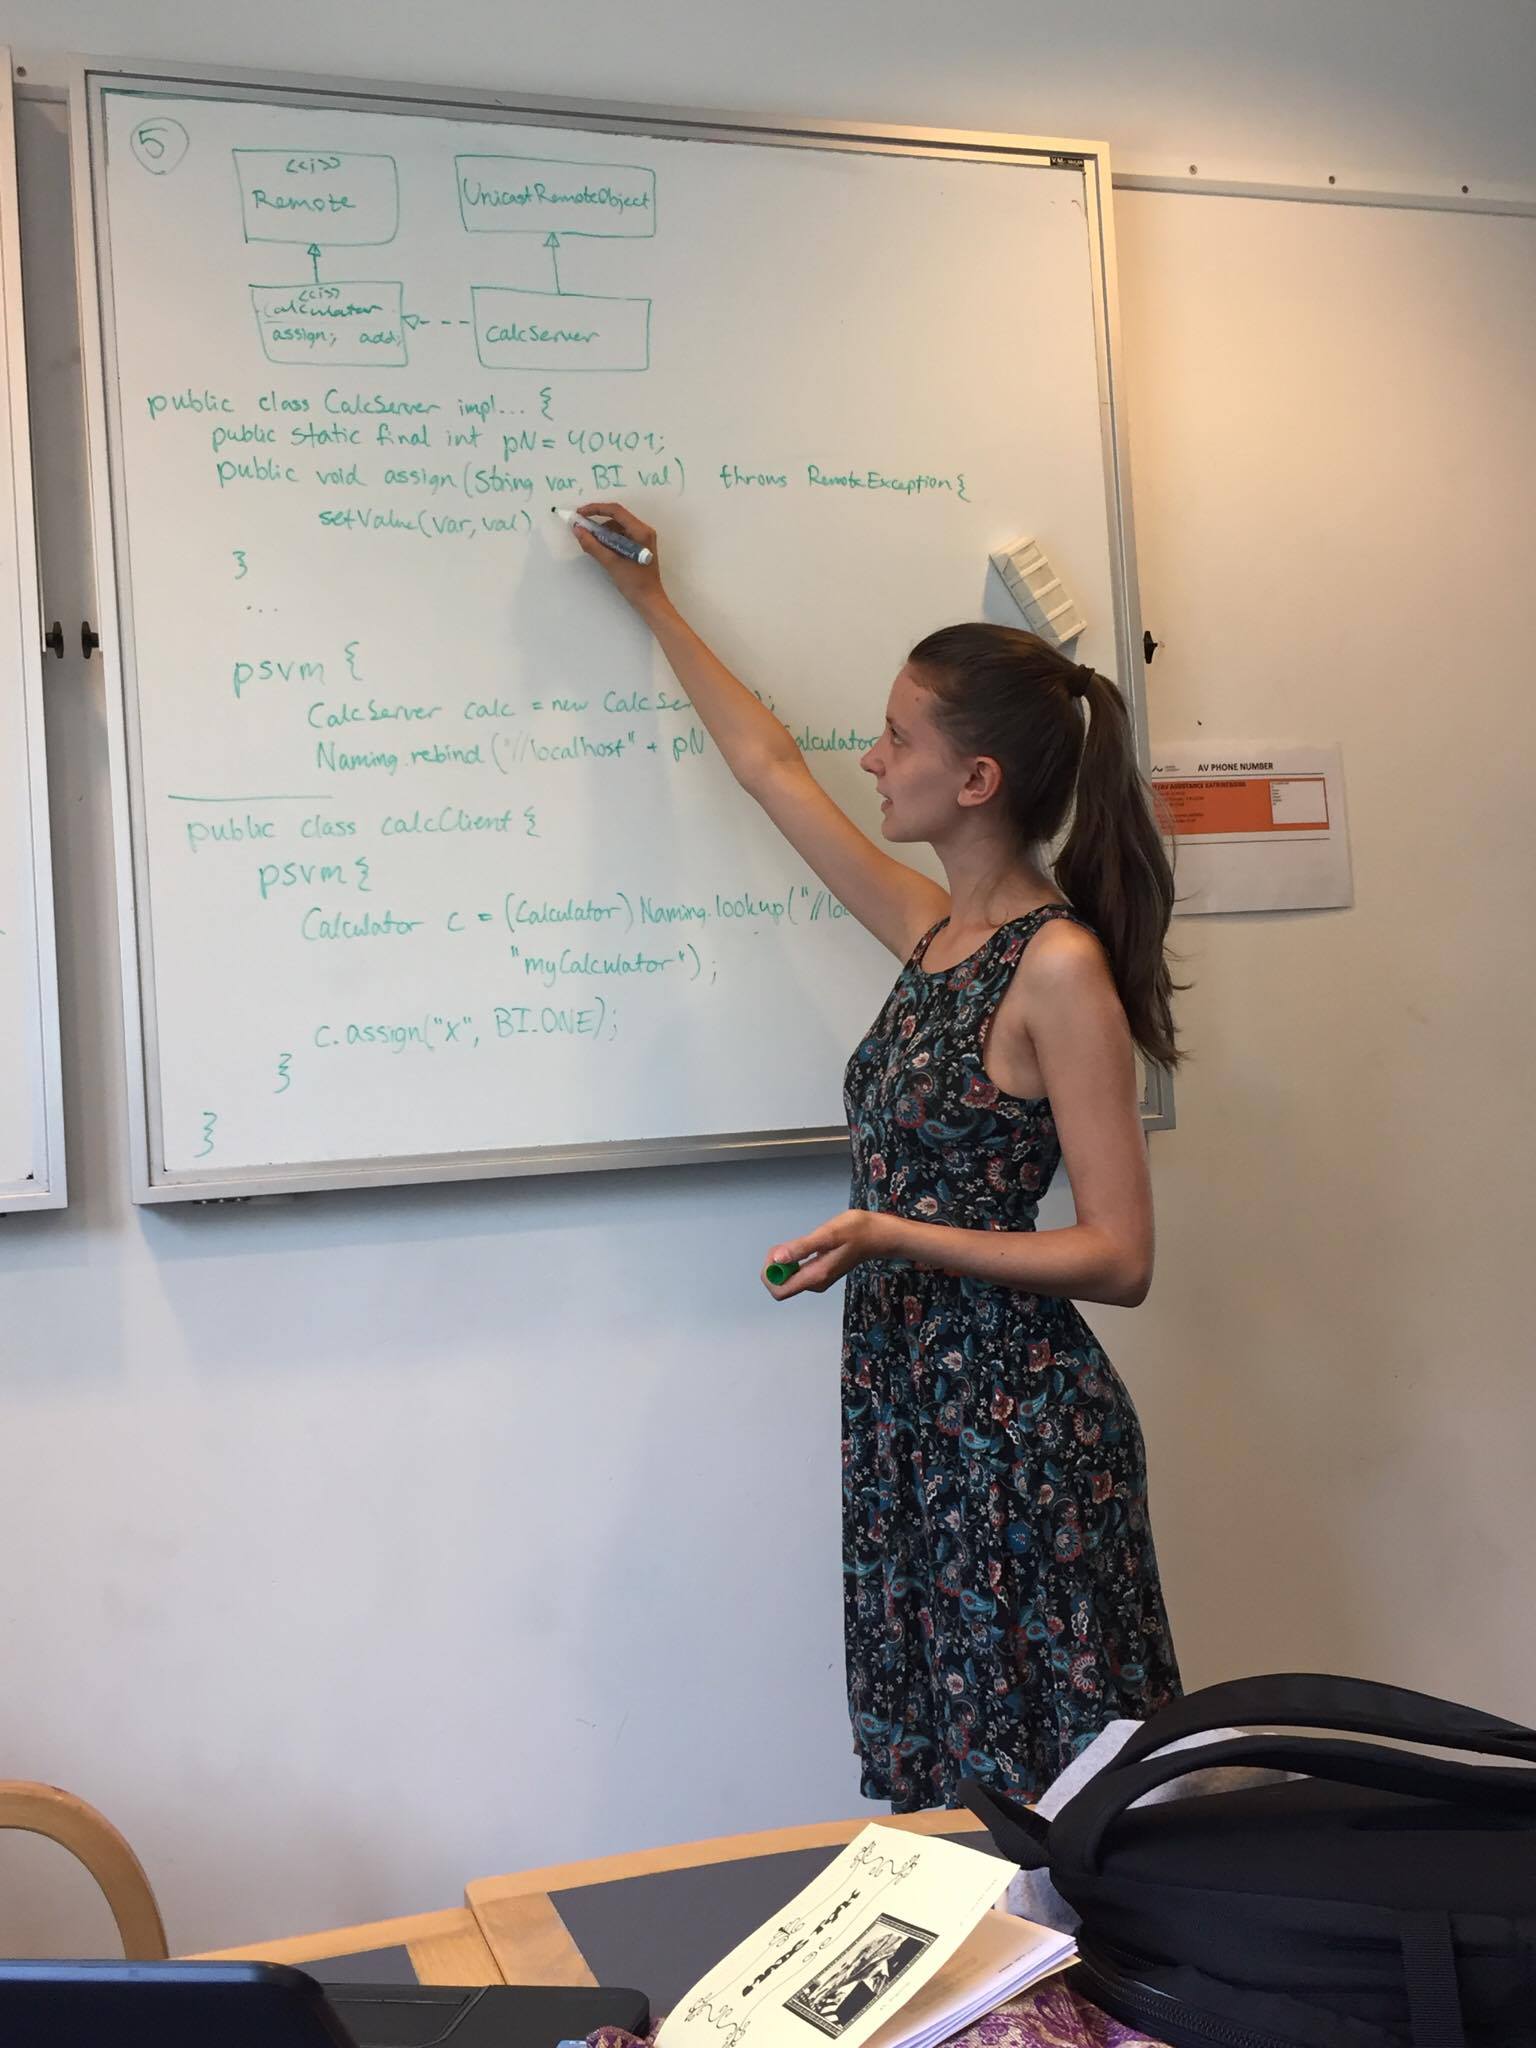 5
<<i>>
Remote
UnicastRemoteObject
<<i>>
Calculator
assign; add;
CalcServer
public class CalcServer impl... {
public static final int pN = 40401;
public void assign(String var, BI val) throws RemoteException {
setValue(var, val)
}
...
psvm {
CalcServer calc = new CalcSer ;
Naming.rebind("//localhost" + pN alculator
public class calcClient {
psvm {
Calculator c = (Calculator) Naming.lookup("//loc
"myCalculator");
c.assign("x", BI.ONE);
}
}
AV PHONE NUMBER
AV ASSISTANCE KATRINEBJERG